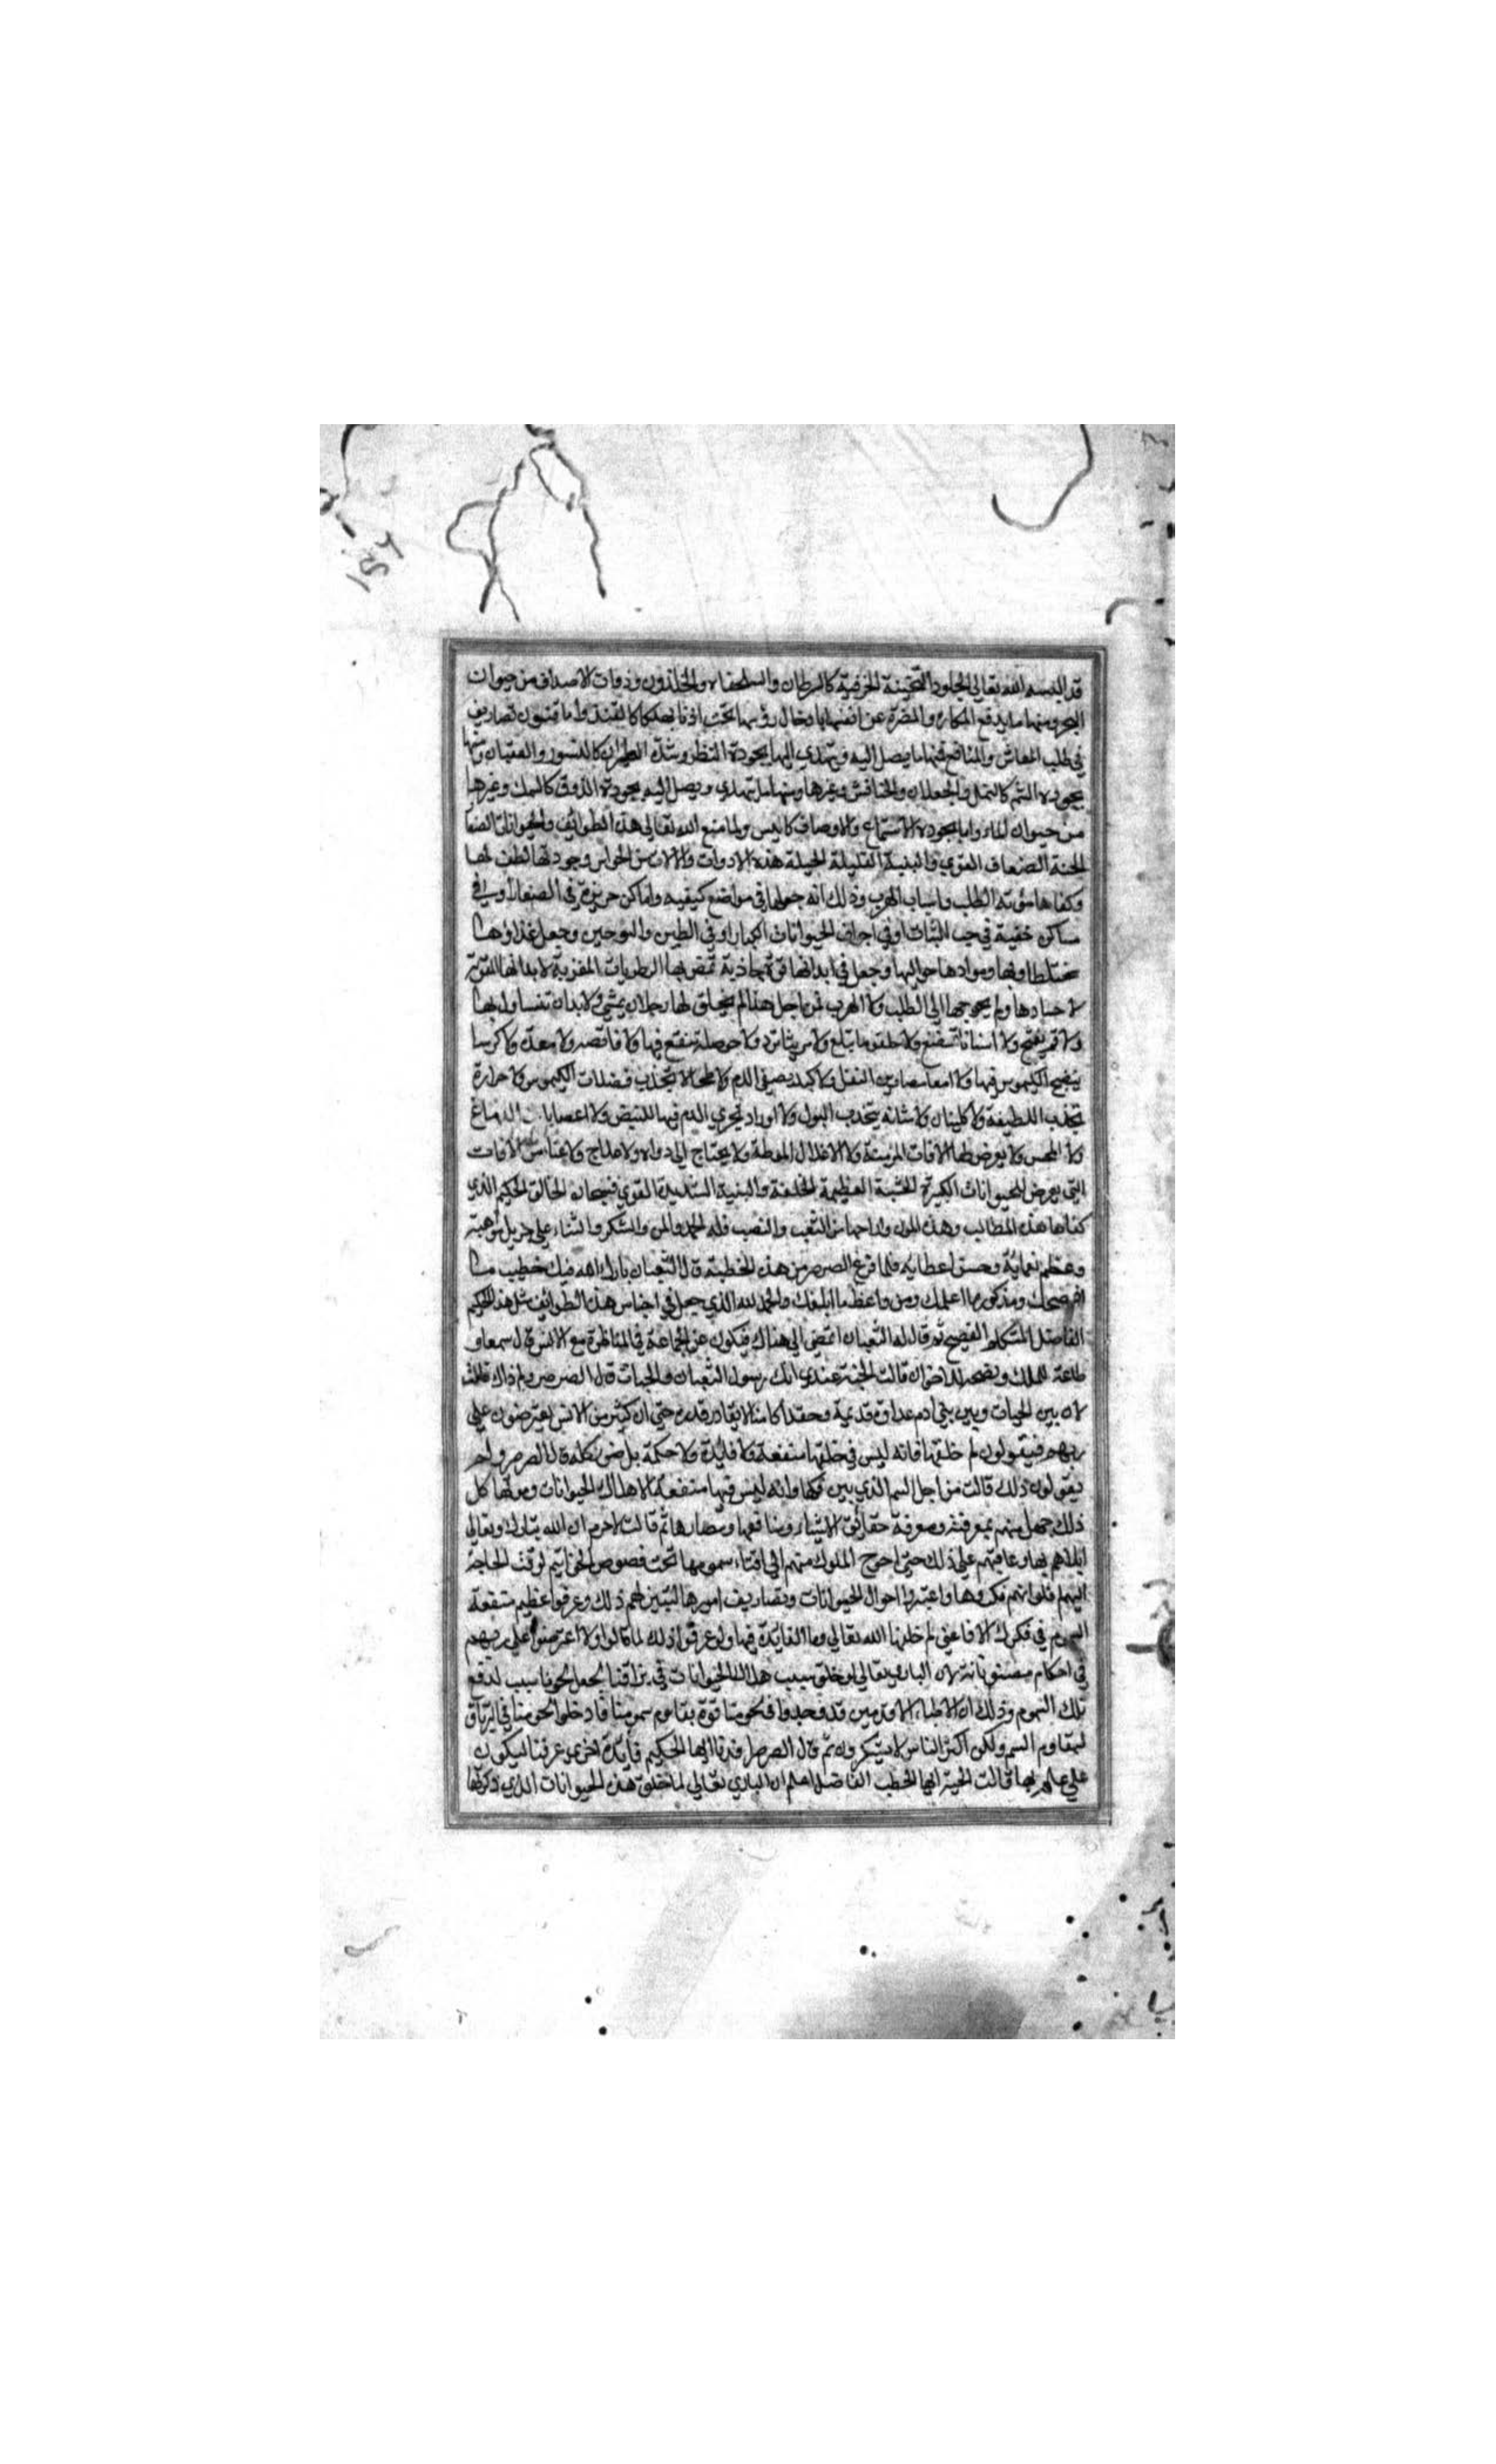 قد البسه الله تعالى الجلود الثخينة الخزفية كالسرطان والسلحفاه والحلذون وذوات الاصداف من حيوان
البحر ومنها ما يدفع المكاره والمضرة عن انفسها بادخال رؤسها تحت اذنابها كالقنفذ واما فنون تصاريف
في طلب المعاش والمنافع فمنها ما يصل اليه ويهتدي اليها بجودة النظر وشدة الطيران كالنسور والعقبان ومنها
بجودة الشم كالنمل والجعلان والخنافس وغيرها ومنها ما يهتدي ويصل اليه بجودة الذوق كالسمك وغيرها
من حيوان الماء واما بجودة الاستماع والاوصاف كابيس ولما منع الله تعالى هذه الطوائف والحيوانات الصغا
الجثة الضعاف القوي والبنية القليلة الحيلة هذه الادوات والالات من الحواس وجودتها لطف لها
وكفاها مؤنة الطلب واسباب الهرب وذلك انه جعلها في مواضع كنيفه واماكن حريزة في
مساكن خفية في حب النبات او في اجواف الحيوانات الكبار او في الطين والسرجين وجعل غذاؤها
مختلطا وبها وموادها حواليها وجعل في ابدانها قوة جاذبة تمص بها الرطوبات المغذية لابدانها المقوية
لاجسادها ولم يحوجها الى الطلب ولا الهرب فمن اجل هذا لم يخلق لها رجلان يمشي ولا يدان تتناول بها
ولا فم يفتح ولا اسنانا تمضغ ولا حلقوما يبتلع ولا مريئا تزدرد ولا حوصلة تنقع فيها ولا قانصه ولا معدة ولا كرشا
ينضج الكيموس فيها ولا امعا مصارين الثفل ولا كبد يصفي الدم ولا طحالا يجذب فضلات الكيموس ولا مرارة
تجذب اللطيفة ولا كليتان ولا مثانه يجذب البول ولا اوراد تجري الدم فيها للنبض ولا اعصابا الدماغ
ولا للحس ولا يعرض لها الافات المزمنة ولا الاعلال ولا يحتاج الى دواء ولا علاج ولا من الافات
التي يعرض للحيوانات الكبيرة الجثة العظيمة الخلقة والبنية الشديدة القوي فسبحان الخالق الحكيم الذي
كفاها هذه المطالب وهذه المون واراحها من التعب والنصب فله الحمد والمن والشكر والثناء على جزيل مواهبه
وعظيم نعمائه وحسن اعطايه فلما فرغ الصرصر من هذه الخطبة قال الثعبان بارك الله فيك خطيب ما
افصحك ومذكور ما اعلمك ومن واعظ ما ابلغك والحمد لله الذي جعل في اجناس هذه الطوائف مثل هذا الحكيم
الفاضل المتكلم الفصيح ثم قال له الثعبان اتمضي الى هناك فيكون عن الجماعة في المناظرة مع الانس قال سمعا و
طاعة للملك ونصيحة للاخوان قالت الحية عندي انك رسول الثعبان والحيات قال الصرصر ولم ذاك قالت
لان بين الحيات وبين بني ادم عداوة قديمة وحقدا كامنا لا يقادر قدره حتى ان كثير من الانس يعترضون على
ربهم فيقولون لم خلقها فانه ليس في خلقها منفعة ولا فائدة ولا حكمة بل ضر كله قال الصرصر ولم
يقولون ذلك قالت من اجل السم الذي بين فكيها وانه ليس فيها منفعة الا هلاك الحيوانات وموتها كل
ذلك جهل منهم بمعرفته ومعرفة حقايق الاشياء ومنافعها ومضارها ثم قالت لا جرم ان الله تبارك وتعالى
ابلاهم بها وعاقبهم على ذلك حتى احوج الملوك منهم الى اقتناء سمومها تحت فصوص الخواتيم لوقت الحاجة
اليهم فلو انهم فكروها واعتبروا احوال الحيوانات وتصاريف امورها لتبين لهم ذلك وعرفوا عظيم منفعة
السموم في فكوك الافاعي لم خلقها الله تعالى وما الفايدة فيها ولو عرفوا ذلك لما قالوا ولا اعترضوا على ربهم
في احكام مصنوعاته لان الباري تعالى لو خلق سبب هلاك الحيوانات في بزاقنا لجعل لحومنا سبب لدفع
تلك السموم وذلك ان الاطباء الاقدمين قد وجدوا في لحومنا قوة يقاوم سمومنا فادخلوا لحومنا في الترياق
ليقاوم السم ولكن اكثر الناس لا يشكرون ثم قال الصرصر ايها الحكيم فائدة اخرى وعرفنا ليكون
على علم بها قالت الحية ايها الخطيب الفاضل اعلم ان الباري تعالى لما خلق هذه الحيوانات الذي ذكرتها